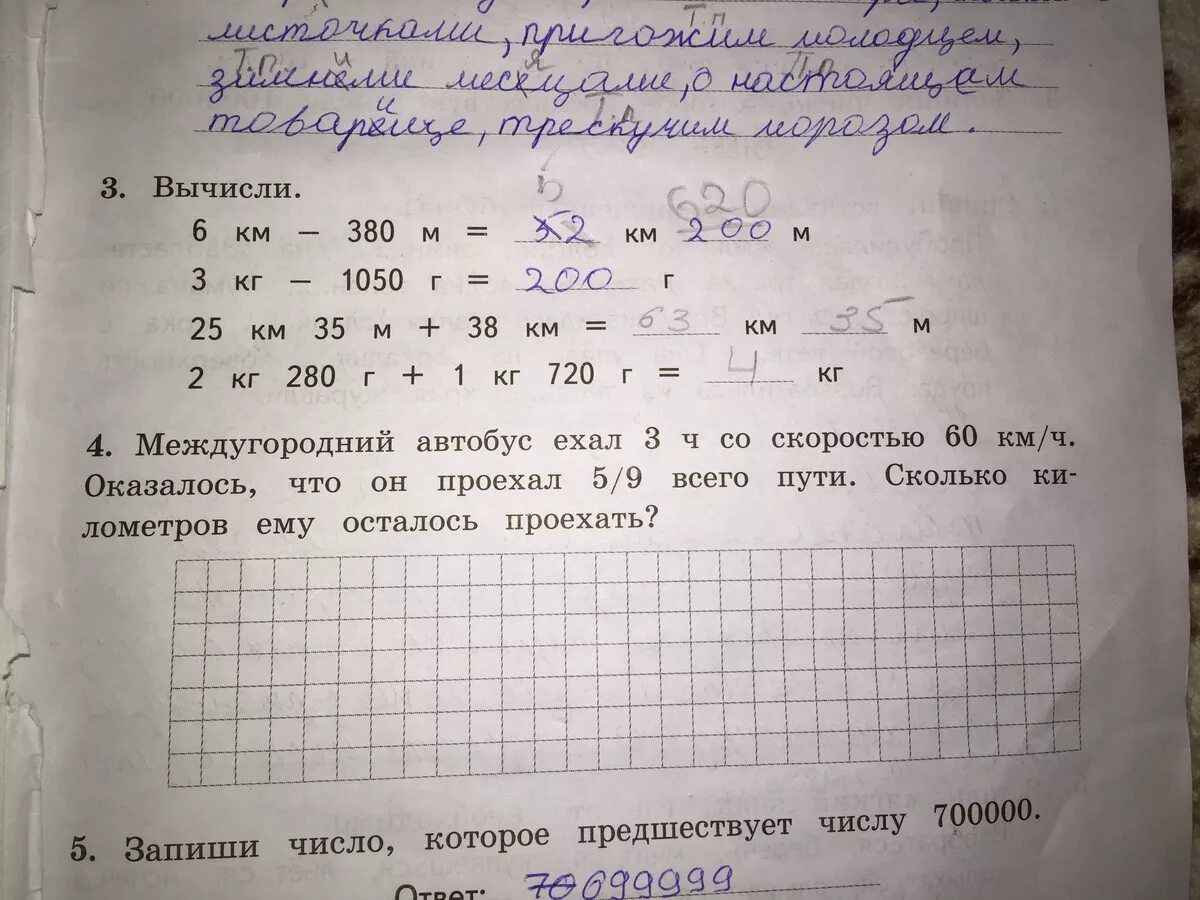 листочками, пригожим молодцем,
Т.п
зимнеми месецами, о настоящам
Т.п. и я П.п
товареще, трескучим морозом.
и Т.п
3. Вычисли.
5 620
6 км − 380 м = 52 км 200 м
3 кг − 1050 г = 200 г
25 км 35 м + 38 км = 63 км 35 м
2 кг 280 г + 1 кг 720 г = 4 кг
4. Междугородний автобус ехал 3 ч со скоростью 60 км/ч.
Оказалось, что он проехал 5/9 всего пути. Сколько ки-
лометров ему осталось проехать?
5. Запиши число, которое предшествует числу 700000.
Ответ: 70 699999